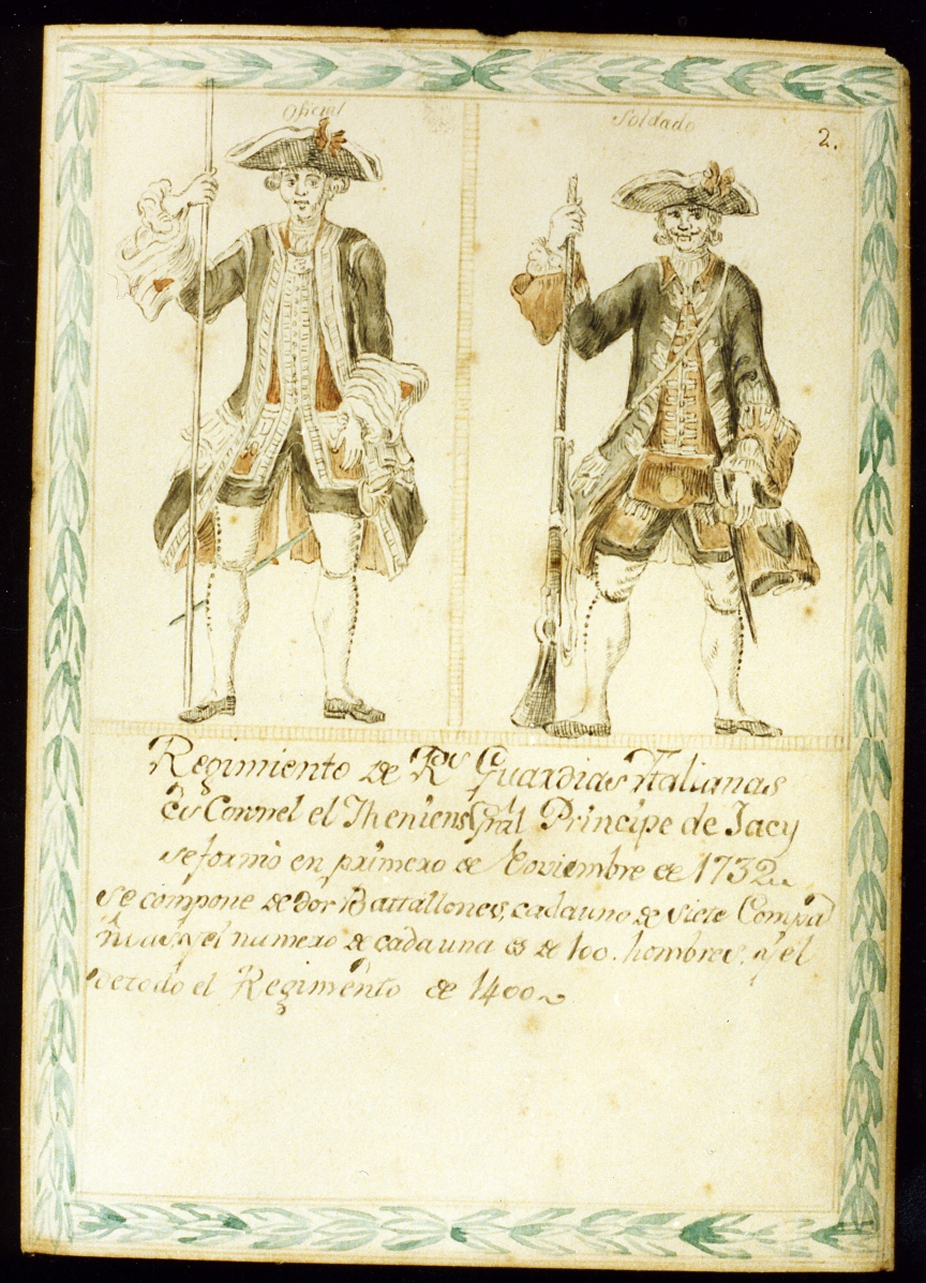 Oficial
Soldado
2.
Regimiento de Rs Guardias Ytalianas
Es Coronel el Theniens Gral Principe de Jacy
se formó en primero de Noviembre de 1732
se compone de dos Battallones, cada uno de siete Compa
nias, y el numero de cada una es de 100. hombres, y el
de todo el Regimento de 1400